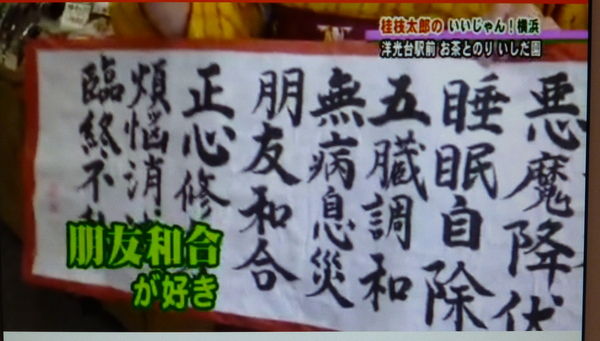 桂枝太郎の いいじゃん!横浜
洋光台駅前 お茶とのり いしだ園
悪魔降伏
睡眠自除
五臓調和
無病息災
朋友和合
正心修
煩悩消
臨終不
朋友和合
が好き